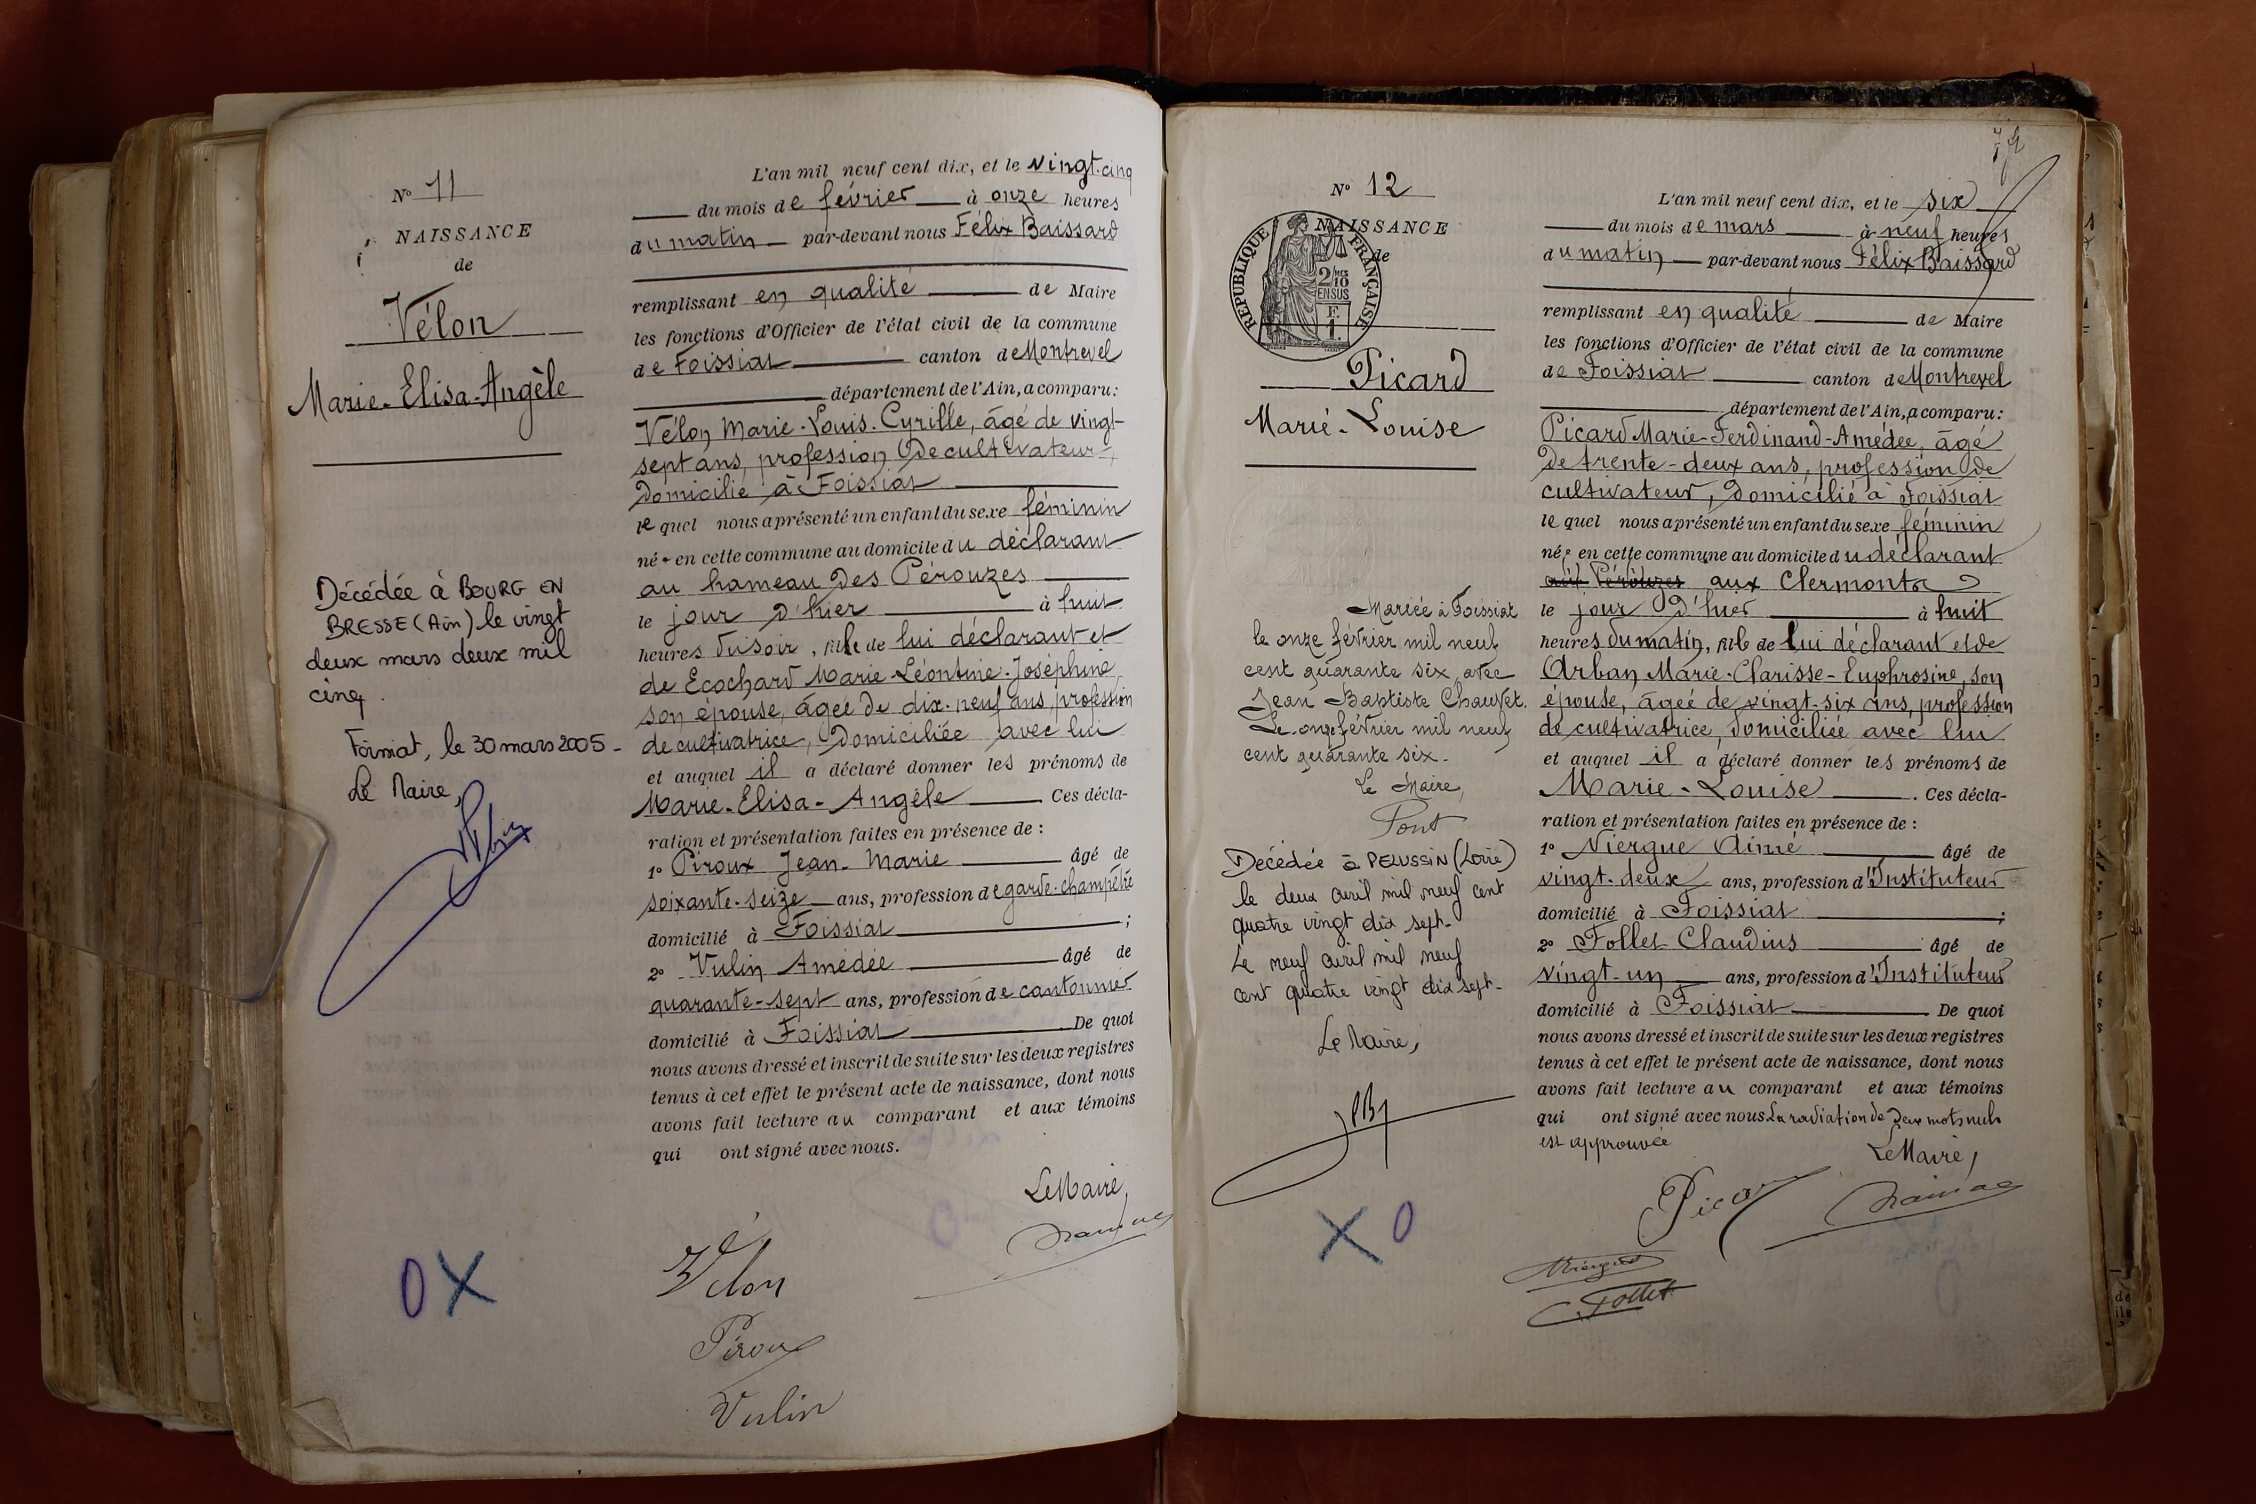 Nº 11
NAISSANCE
de
Vélon
Marie-Elisa-Angèle
Décédée à BOURG EN
BRESSE (Ain) le vingt
deux mars deux mil
cinq.
Foissiat, le 30 mars 2005
Le Maire,
L'an mil neuf cent dix, et le vingt-cinq
du mois de février à onze heures
du matin par-devant nous Félix Baissard
remplissant en qualité de Maire
les fonctions d'Officier de l'état civil de la commune
de Foissiat canton de Montrevel
département de l'Ain, a comparu:
Vélon Marie-Louis-Cyrille, âgé de vingt-
sept ans, profession de cultivateur,
domicilié à Foissiat
lequel nous a présenté un enfant du sexe féminin
né e en cette commune au domicile du déclarant
au hameau des Pérouzes
le jour d'hier à huit
heures du soir, fille de lui déclarant et
de Ecochard Marie-Léontine-Joséphine
son épouse, âgée de dix-neuf ans, profession
de cultivatrice, domiciliée avec lui
et auquel il a déclaré donner les prénoms de
Marie-Elisa-Angèle Ces décla-
ration et présentation faites en présence de :
1º Piroux Jean-Marie âgé de
soixante-seize ans, profession de garde-champêtre
domicilié à Foissiat ;
2º Vulin Amédée âgé de
quarante-sept ans, profession de cantonnier
domicilié à Foissiat De quoi
nous avons dressé et inscrit de suite sur les deux registres
tenus à cet effet le présent acte de naissance, dont nous
avons fait lecture au comparant et aux témoins
qui ont signé avec nous.
Le Maire,
Vélon
Piroux
Vulin
O X
Nº 12
NAISSANCE
de
RÉPUBLIQUE FRANÇAISE
2/10 MES
EN SUS
F.
1.
Picard
Marie-Louise
Mariée à Foissiat
le onze février mil neuf
cent quarante six, avec
Jean Baptiste Chauvet.
Le onze février mil neuf
cent quarante six.
Le Maire,
Pont
Décédée à PELUSSIN (Loire)
le deux avril mil neuf cent
quatre vingt dix sept.
Le neuf avril mil neuf
cent quatre vingt dix sept.
Le Maire,
X O
L'an mil neuf cent dix, et le six
du mois de mars à neuf heures
du matin par-devant nous Félix Baissard
remplissant en qualité de Maire
les fonctions d'Officier de l'état civil de la commune
de Foissiat canton de Montrevel
département de l'Ain, a comparu:
Picard Marie-Ferdinand-Amédée, âgé
de trente-deux ans, profession de
cultivateur, domicilié à Foissiat
lequel nous a présenté un enfant du sexe féminin
née en cette commune au domicile du déclarant
aux Pérouzes aux Clermonts
le jour d'hier à huit
heures du matin, fille de lui déclarant et de
Arban Marie-Clarisse-Euphrosine, son
épouse, âgée de vingt-six ans, profession
de cultivatrice, domiciliée avec lui
et auquel il a déclaré donner les prénoms de
Marie-Louise . Ces décla-
ration et présentation faites en présence de :
1º Niergue Aimé âgé de
vingt-deux ans, profession d'Instituteur
domicilié à Foissiat ;
2º Follet Claudius âgé de
vingt-un ans, profession d'Instituteur
domicilié à Foissiat De quoi
nous avons dressé et inscrit de suite sur les deux registres
tenus à cet effet le présent acte de naissance, dont nous
avons fait lecture au comparant et aux témoins
qui ont signé avec nous. La radiation de deux mots nuls
est approuvée
Le Maire,
Picard
C. Follet